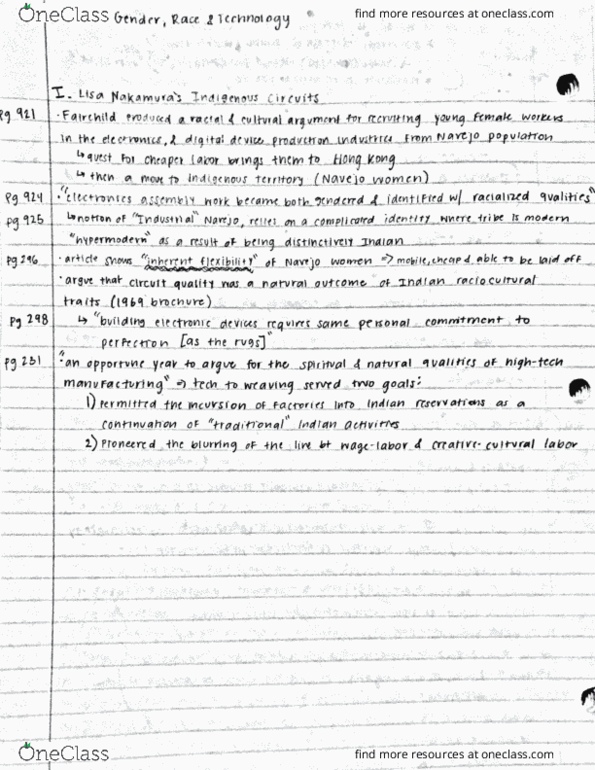 OneClass
find more resources at oneclass.com
Gender, Race & Technology
I. Lisa Nakamura's Indigenous Circuits
Pg 921 · Fairchild produced a racial & cultural argument for recruiting young female workers
in the electronics, & digital device production industries from Navejo population
↳ quest for cheaper labor brings them to Hong Kong
↳ then a move to indigenous territory (Navejo women)
Pg 924 · "electronics assembly work became both gendered & identified w/ racialized qualities"
pg 925 ↳ notion of "Industrial" Navejo, relies on a complicated identity where tribe is modern
"hypermodern" as a result of being distinctively Indian
pg 296 · article shows "inherent flexibility" of Navejo women => mobile, cheap & able to be laid off
· argue that circuit quality was a natural outcome of Indian racio cultural
traits (1969 brochure)
pg 298 ↳ "building electronic devices requires same personal commitment to
perfection [as the rugs]"
pg 231 · "an opportune year to argue for the spiritual & natural qualities of high-tech
manufacturing" => tech to weaving served two goals:
1) Permitted the incursion of factories into Indian reservations as a
continuation of "traditional" Indian activities
2) Pioneered the blurring of the line bt wage-labor & creative-cultural labor
OneClass
find more resources at oneclass.com